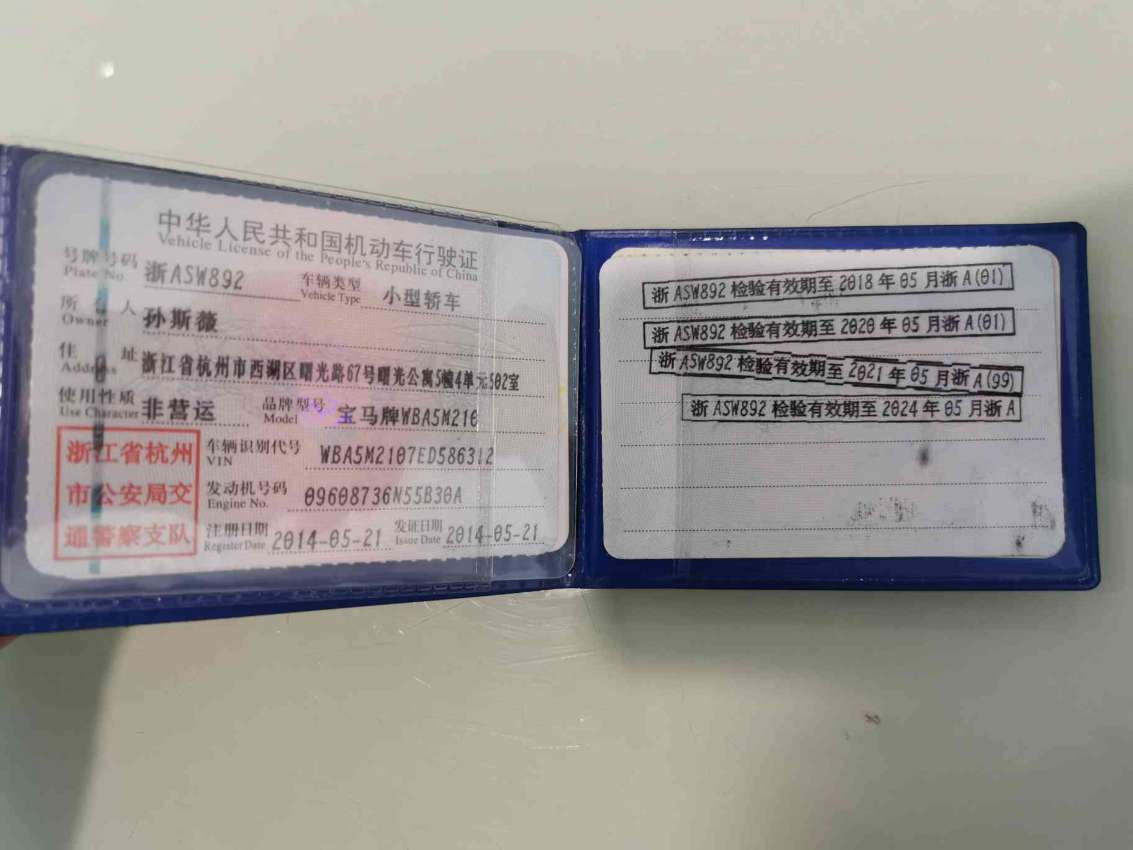 中华人民共和国机动车行驶证
Vehicle License of the People's Republic of China
号牌号码 浙ASW892 车辆类型 小型轿车
Plate No. Vehicle Type
所有人 孙斯薇
Owner
住址 浙江省杭州市西湖区曙光路67号曙光公寓5幢4单元502室
Address
使用性质 非营运 品牌型号 宝马牌WBA5M210
Use Character Model
浙江省杭州
市公安局交
通警察支队
车辆识别代号 WBA5M2107ED586312
VIN
发动机号码 09608736N55B30A
Engine No.
注册日期 2014-05-21 发证日期 2014-05-21
Register Date Issue Date
浙ASW892 检验有效期至2018年05月浙A(01)
浙ASW892 检验有效期至2020年05月浙A(01)
浙ASW892 检验有效期至2021年05月浙A(99)
浙ASW892 检验有效期至2024年05月浙A